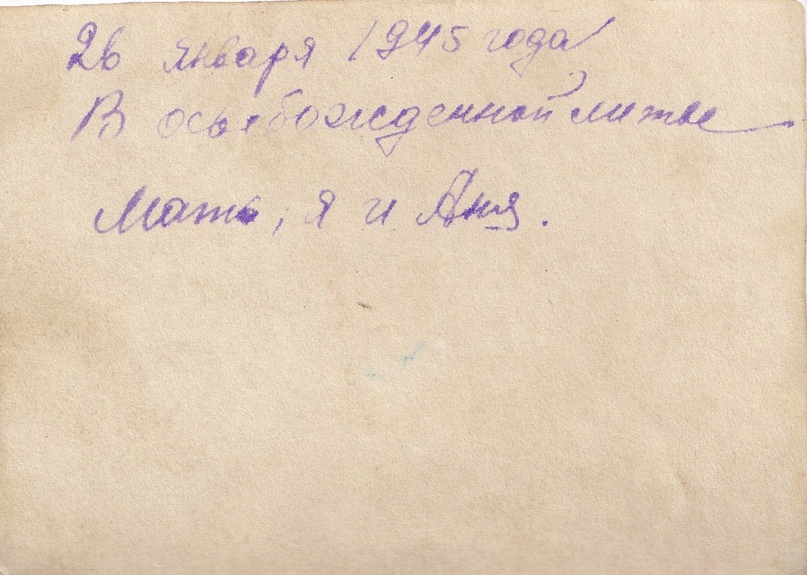 26 января 1945 года
В освобожденной литве
Мать, я и Аня.